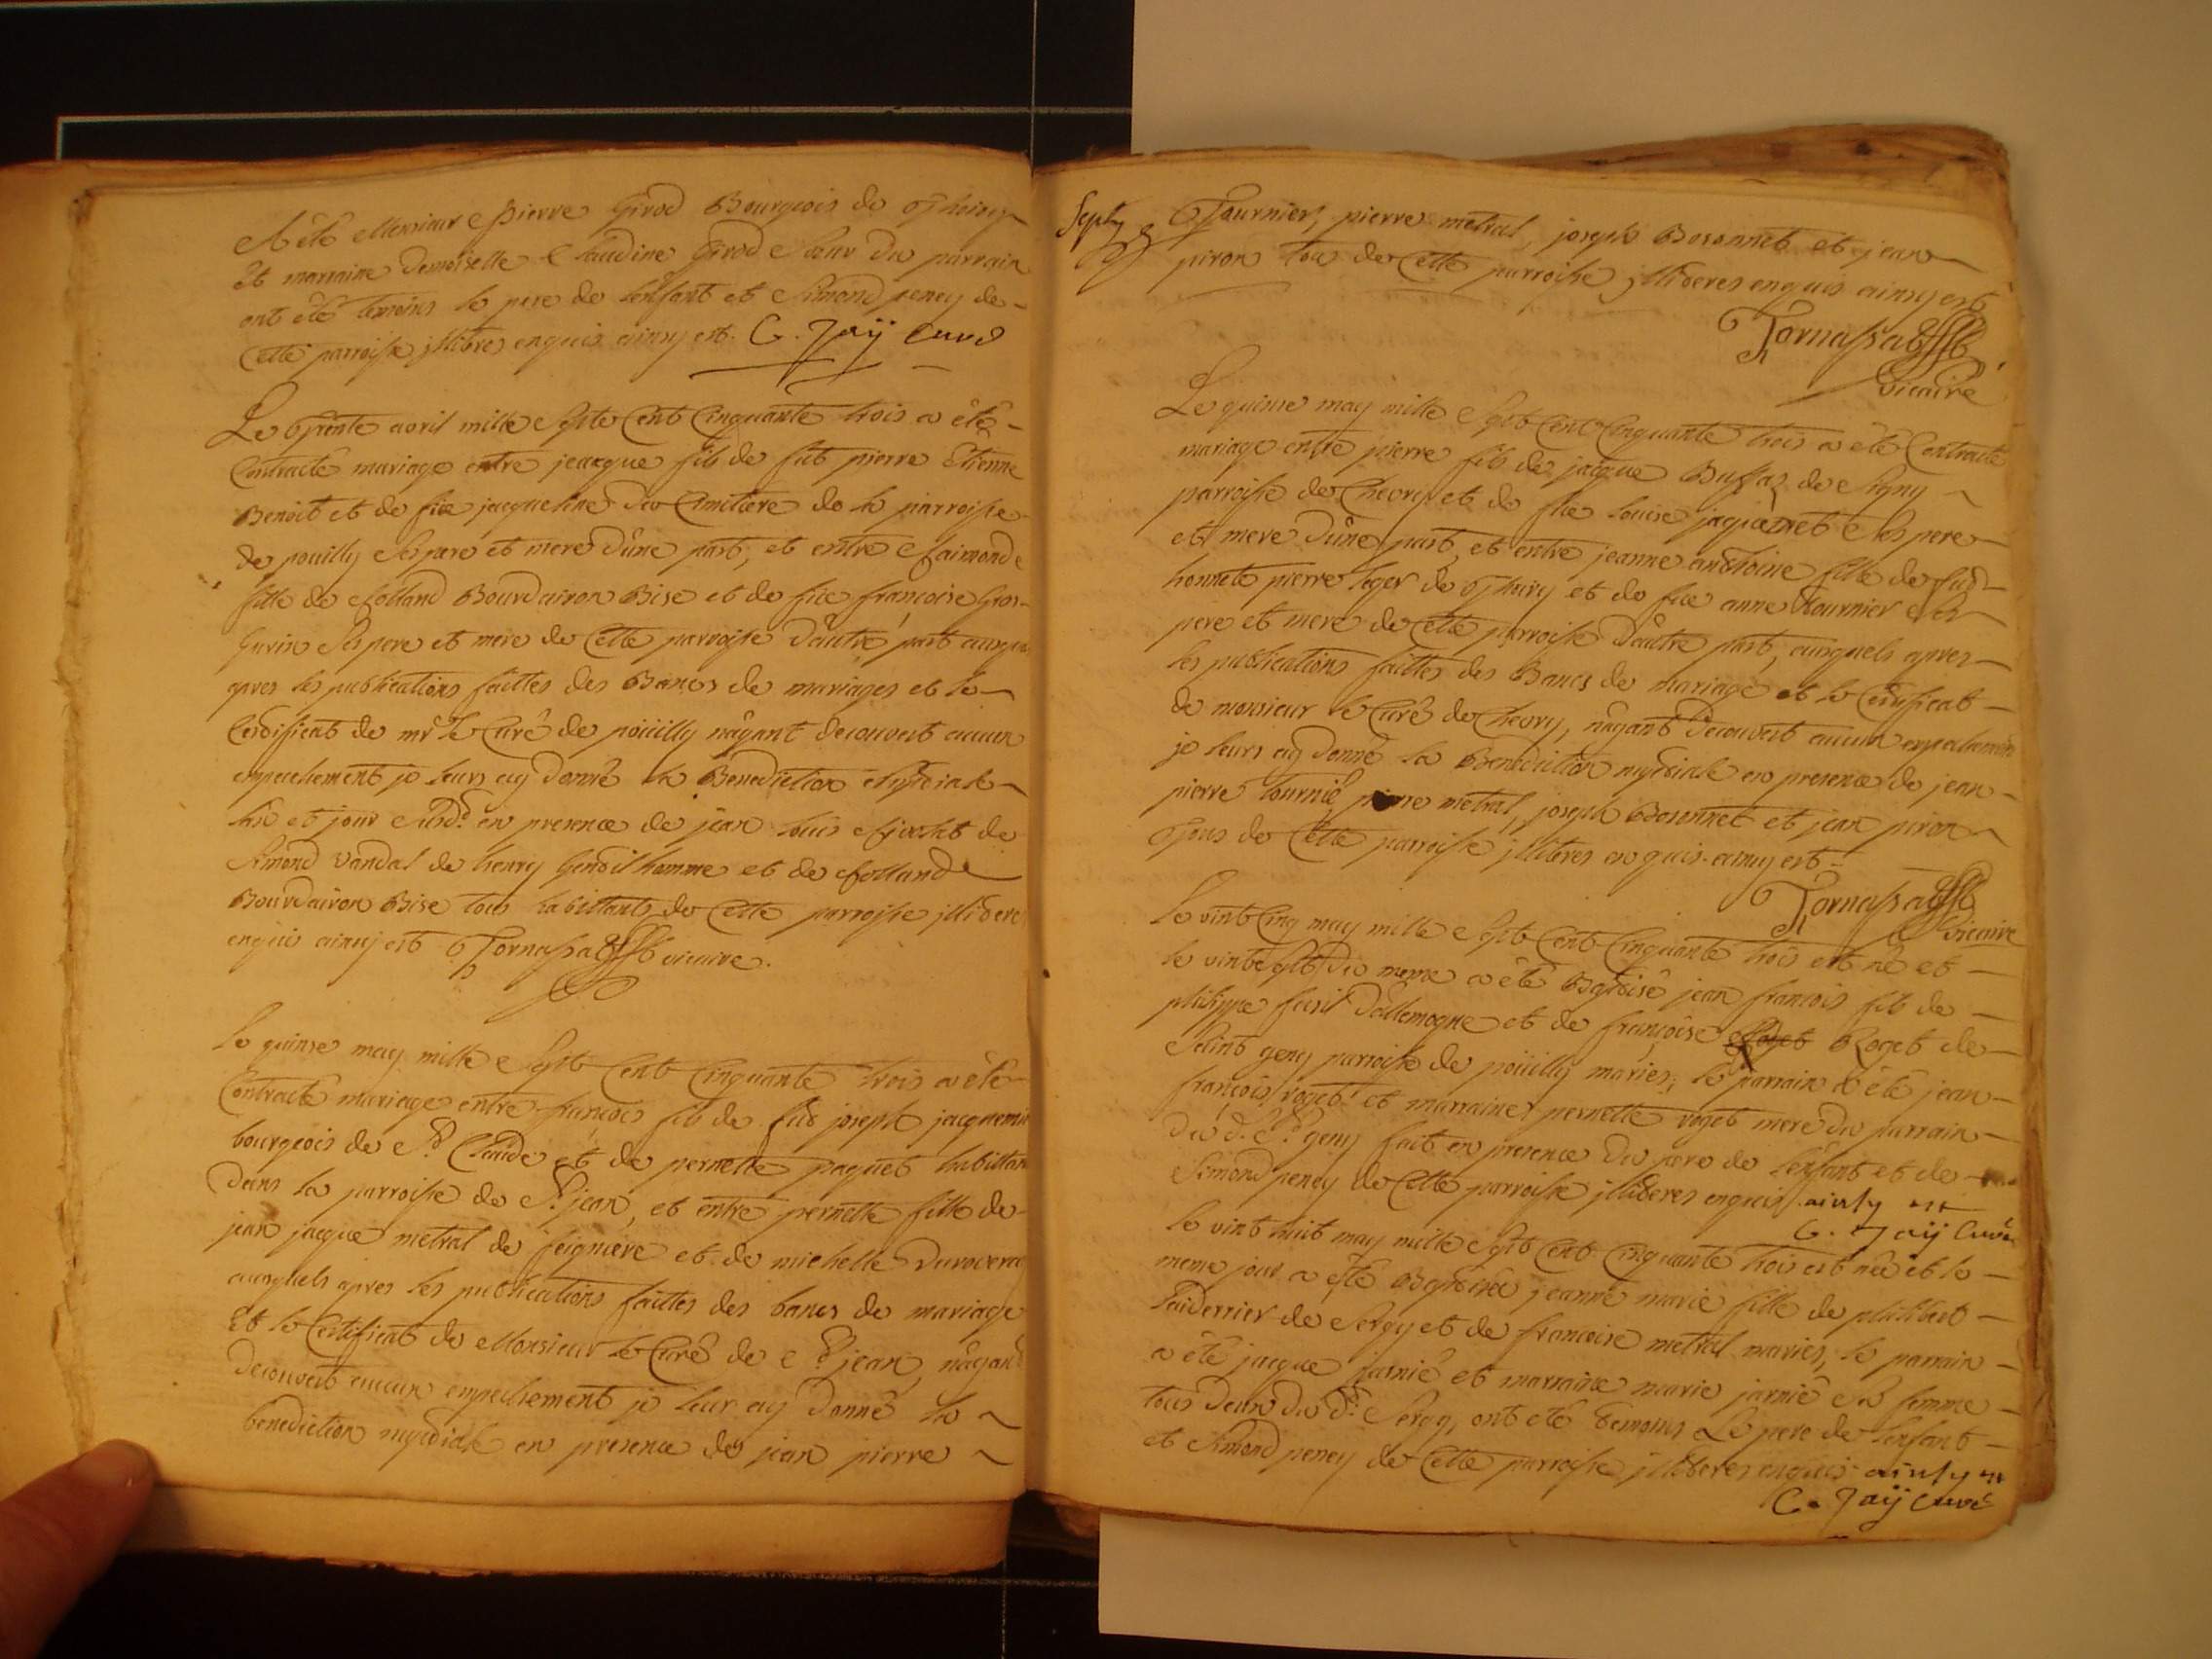 A été Monsieur Pierre Girod Bourgeois de Thoiry
Et marraine Demoiselle Claudine Girod Sœur du parrain
ont été temoins le pere de l'enfant et Simond peney de
Cette parroisse illitres enquis ainsy est. C. Jaÿ Curé
Le Trente avril mille Septe Cent Cinquante trois a été
Contracté mariage entre jacque fils de fut pierre Etienne
Benoit et de fue jacqueline du Cimitiere de la parroisse
de pouilly Ses pere et mere d'une part, et entre Claimonde
fille de Rolland Bourdairon Bise et de fue françoise Gros-
Gurin Ses pere et mere de Cette parroisse d'autre part ausquels
apres les publications faittes des Bancs de mariages et le
Certificat de mr. le Curé de poüilly n'ayant decouvert aucun
empechement je leurs ay donné la Benediction Nuptiale
lan et jour Susd. en presence de jean louis de
Simond Vandal de henry Gentilhomme et de Rolland
Bourdairon Bise tous habittants de Cette parroisse illiteres
enquis ainsy est Tornassat vicaire.
Le quinse may mille Sept Cent Cinquante trois a été
Contracté mariage entre françois fils de fut joseph jacquemin
bourgeois de St. Claude et de pernette paquet habittant
dans la parroisse de St. jean, et entre pernette fille de
jean jacque metral de feigniere et de michelle Duroveray
ausquels apres les publications faittes des bancs de mariage
Et le Certificat de Monsieur le Curé de St. jean n'ayant
decouvert aucun empechement je leur ay donné la
benediction nuptiale en presence de jean pierre
Septz
Tournier, pierre metral, joseph Bosonnet et jean
piron tou de Cette parroisse illiteres enquis ainsy est
Tornassat
vicaire
Le quinse may mille Sept Cent Cinquante trois a été Contracté
mariage entre pierre fils de jacque Buffaz de Signy
parroisse de Chevry et de fue louise jaquemet Ses pere
et mere d'une part, et entre jeanne anthoine fille de fut
honnete pierre leger de Thoiry et de fue anne tournier Ses
pere et mere de Cette parroisse d'autre part, ausquels apres
les publications faittes des Bancs de mariage et le Certificat
de monsieur le Curé de Chevry, n'ayant decouvert aucun empechement
je leurs ay donné la Benediction nuptiale en presence de jean
pierre tournié pierre metral, joseph Bosonnet et jean piron
Tous de Cette parroisse illiteres enquis ainsy est
Tornassat
vicaire
Le vint Cinq may mille Sept Cent Cinquante trois est né et
le vint Sept du meme a été Baptisé jean francois fils de
philippe fusil d'allemogne et de françoise Roget de
Saint geny parroisse de poüilly mariés; le parrain a été jean
françois roget et marraine pernette roget mere du parrain
du d. St. geny fait en presence du pere de l'enfant et de
Simond peney de Cette parroisse illiteres enquis ainsy est
C. Jaÿ Curé
Le vint huit may mille Sept Cent Cinquante trois est née et le
meme jour a été Baptisée jeanne marie fille de philibert
laiderrier de Sergy et de francoise metral mariés, le parrain
a été jacque jarnié et marraine marie jarnié Sa femme
tous deux du dt. Sergy, ont été temoins Le pere de l'enfant
et Simond peney de Cette parroisse illiteres enquis ainsy est
C. Jaÿ Curé